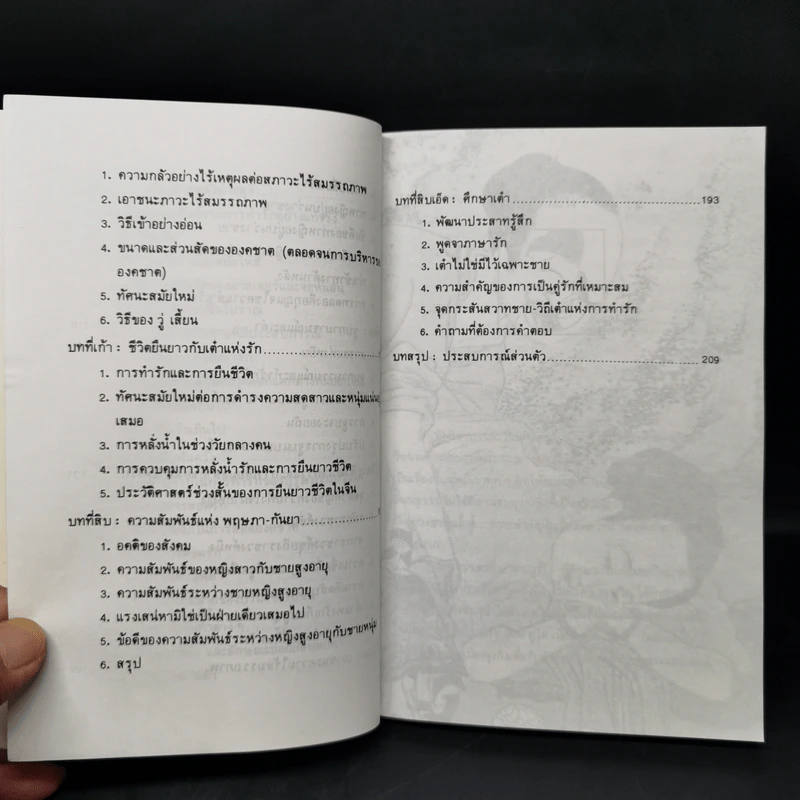 1. ความกลัวอย่างไร้เหตุผลต่อสภาวะไร้สมรรถภาพ
2. เอาชนะภาวะไร้สมรรถภาพ
3. วิธีเข้าอย่างอ่อน
4. ขนาดและส่วนสัดขององคชาต (ตลอดจนการบริหาร
องคชาต)
5. ทัศนะสมัยใหม่
6. วิธีของ วู่ เสี้ยน
บทที่เก้า : ชีวิตยืนยาวกับเต๋าแห่งรัก
1. การทำรักและการยืนชีวิต
2. ทัศนะสมัยใหม่ต่อการดำรงความสดสาวและหนุ่มแน่น
เสมอ
3. การหลั่งน้ำในช่วงวัยกลางคน
4. การควบคุมการหลั่งน้ำรักและการยืนยาวชีวิต
5. ประวัติศาสตร์ช่วงสั้นของการยืนยาวชีวิตในจีน
บทที่สิบ : ความสัมพันธ์แห่ง พฤษภา-กันยา
1. อคติของสังคม
2. ความสัมพันธ์ของหญิงสาวกับชายสูงอายุ
3. ความสัมพันธ์ระหว่างชายหญิงสูงอายุ
4. แรงเสน่หามิใช่เป็นฝ่ายเดียวเสมอไป
5. ข้อดีของความสัมพันธ์ระหว่างหญิงสูงอายุกับชายหนุ่ม
6. สรุป
บทที่สิบเอ็ด : ศึกษาเต๋า 193
1. พัฒนาประสาทรู้สึก
2. พูดจาภาษารัก
3. เต๋าไม่ใช่มีไว้เฉพาะชาย
4. ความสำคัญของการเป็นคู่รักที่เหมาะสม
5. จุดกระสันสวาทชาย-วิถีเต๋าแห่งการทำรัก
6. คำถามที่ต้องการคำตอบ
บทสรุป : ประสบการณ์ส่วนตัว 209